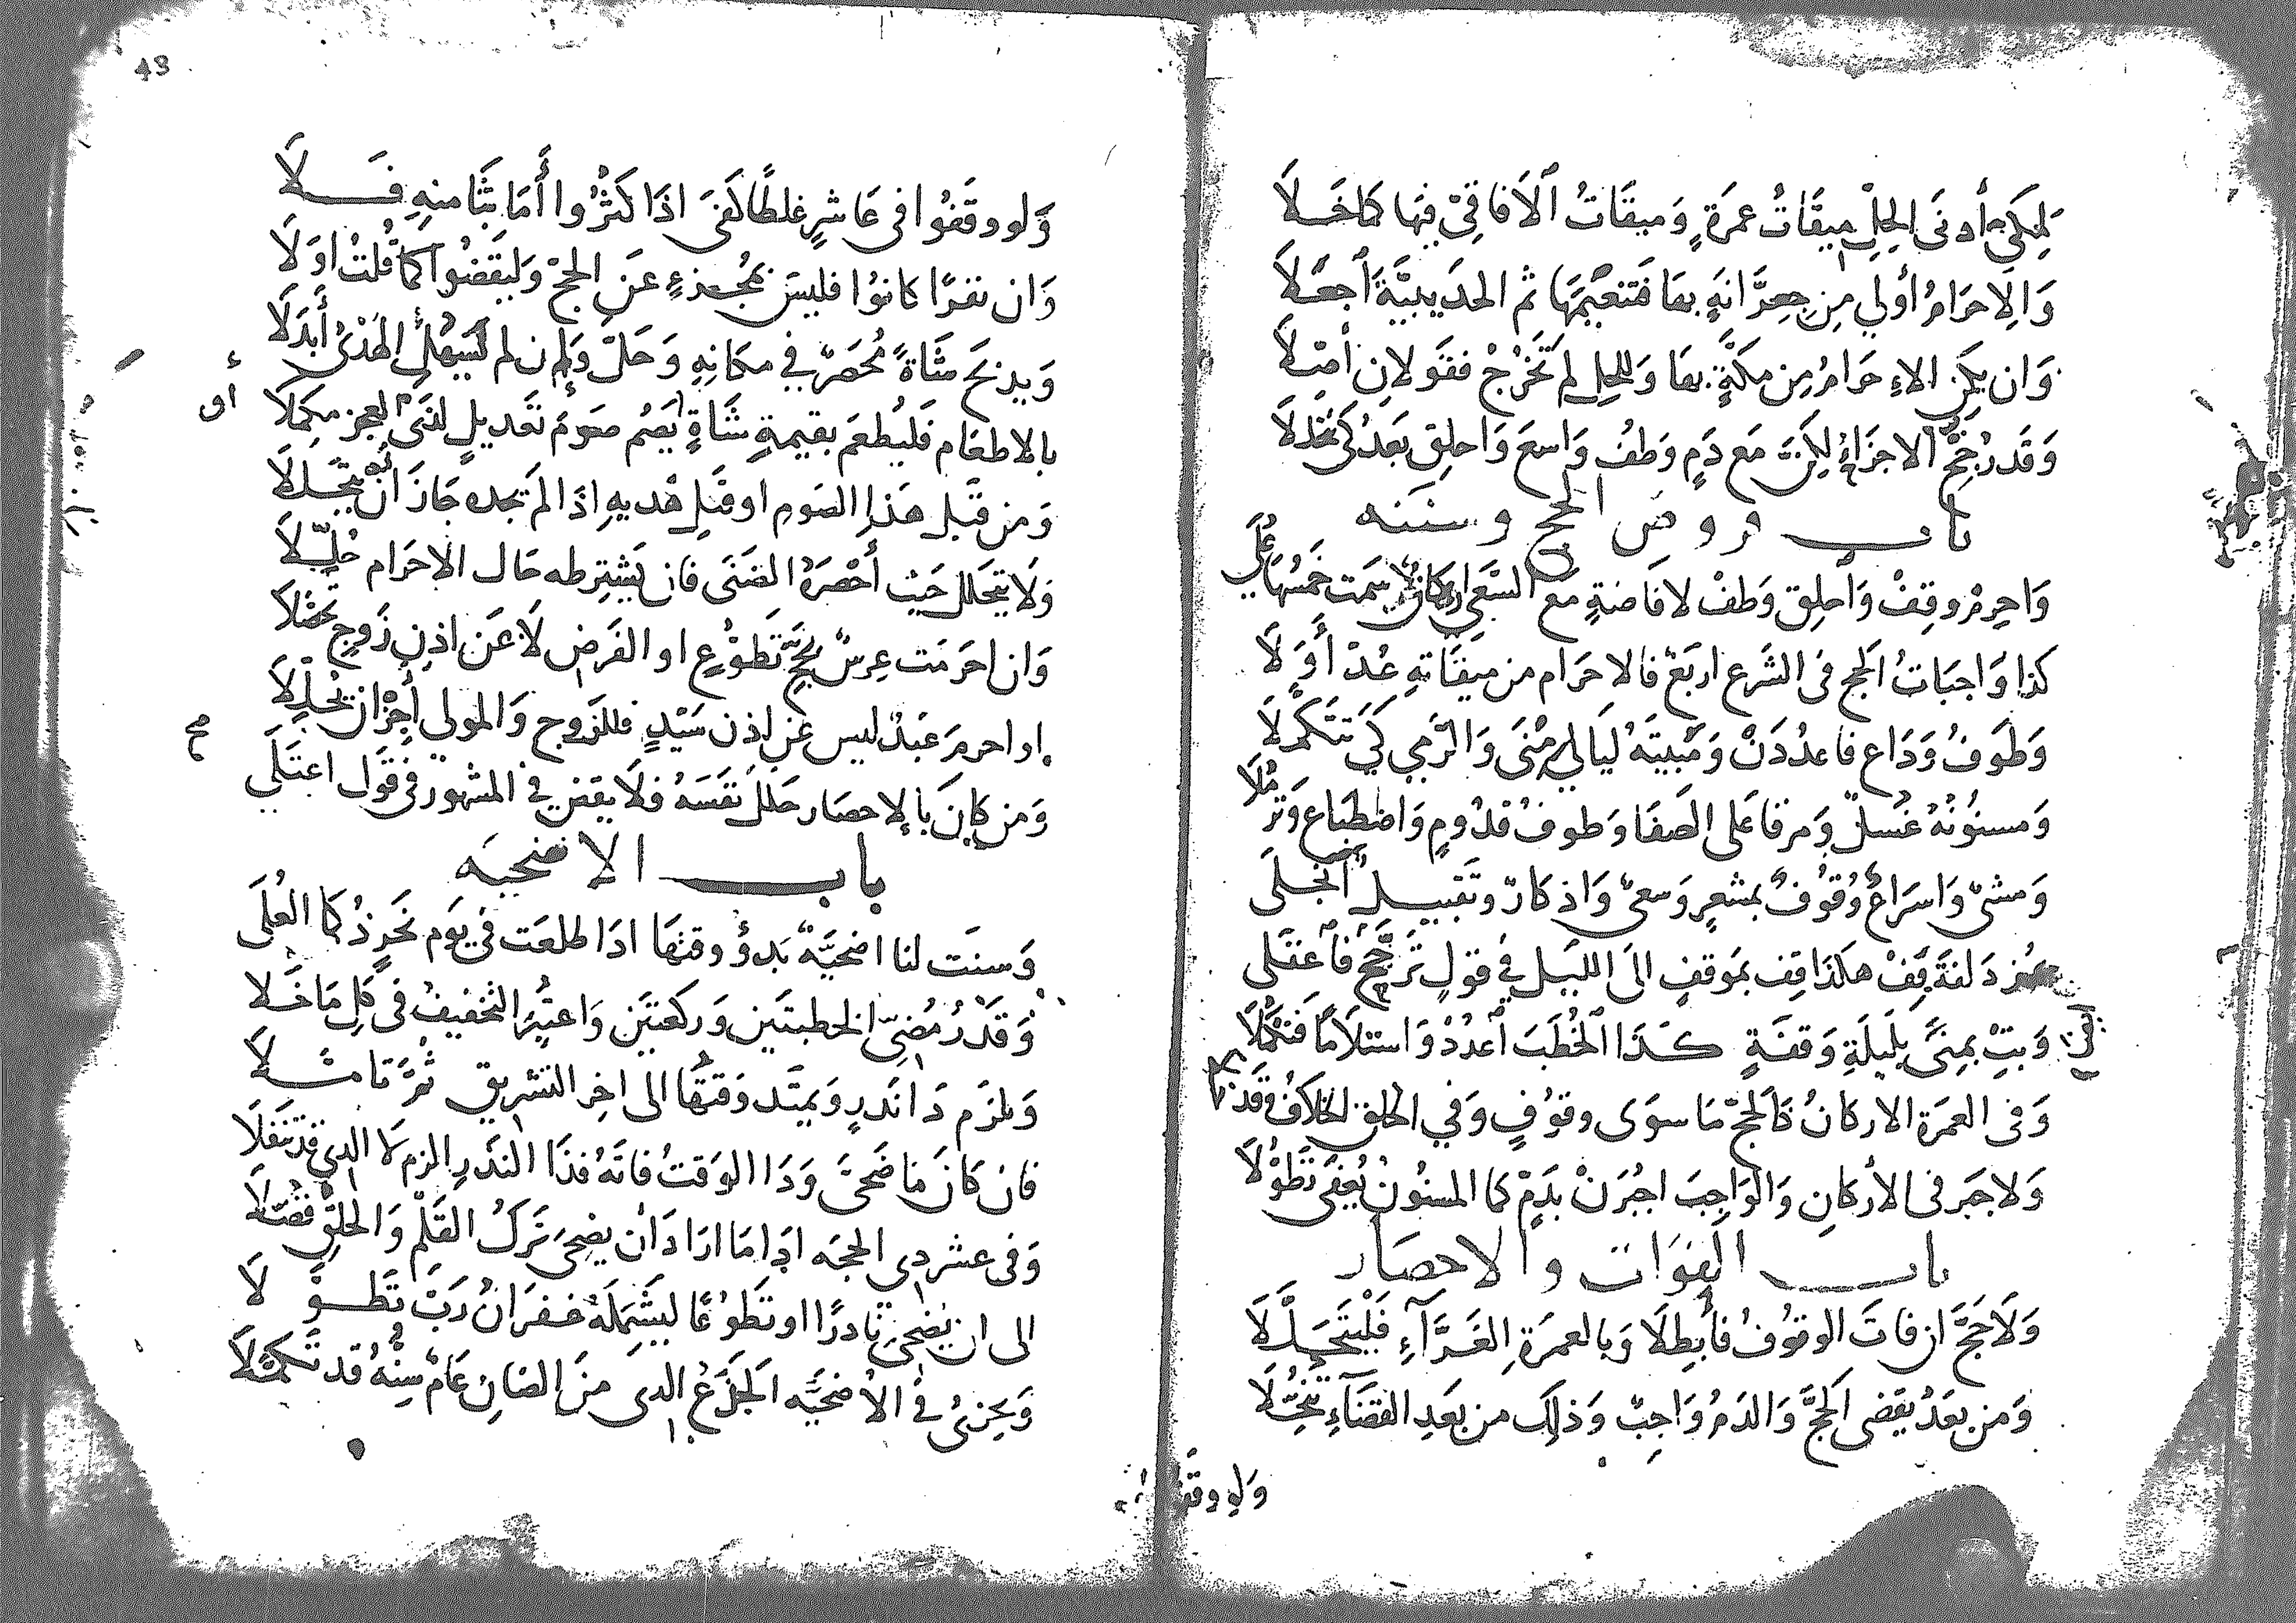 لمكي أدنى الحل ميقات عمرة وميقات الآفاقي فيها كما خلا
والاحرام أولي من جعرانة بها فتنعيمها ثم الحديبية اجعلا
وان يكن الاحرام من مكة بها وللحل لم تخرج فقولان أصلا
وقد رجح الاجزاء لكن مع دم وطف واسع واحلق بعد كي
باب فروض الحج وسننه
واحرم وقف واحلق وطف لافاضة مع السعي اركان سمت خمسها علي
كذا واجبات الحج فى الشرع اربع فالاحرام من ميقاته عد أولا
وطوف وداع فاعددن ومبيته ليالي منى والرمي كي تتكملا
ومسنونه غسل ومرقا على الصفا وطوف قدوم واضطباع وترملا
ومشى واسراع وقوف بمشعر وسعى واذكار وتقبيل انجلى
بمزدلفة قف هكذا قف بموقف الى الليل في قول ترجح فاعقلى
وبت بمنى بليلة وقفة كذا الخطب اعدد واستلاما فتكملا
وفى العمرة الاركان كالحج ما سوى وقوف وفي الحلق الخلاف وقد
ولا جبر فى الأركان والواجب اجبرن بدم كما المسنون يعفى تطولا
باب الفوات والاحصار
ولا حج ان فات الوقوف فأبطلا وبالعمرة الغراء فليتحللا
ومن بعد يقضى الحج والدم واجب وذلك من بعد القضاء
ولو وقفوا
43
ولو وقفوا فى عاشر غلطا كفى اذا كثروا أما بثامنه فلا
وان نفرا كانوا فليس بمجزء عن الحج وليقضوا كما قلت اولا
ويذبح شاة محصر في مكانه وحل وان لم يسهل الهدى أبدلا
بالاطعام فليطعم بقيمة شاة يصم صوم تعديل لدى العجز مكملا
ومن قبل هذا الصوم او قبل هديه اذا لم يجده جاز ان
ولا يتحلل حيث أحصره الضنى فان يشترطه حال الاحرام حللا
وان احرمت عرس بحج تطوع او الفرض لا عن اذن زوج تحصلا
او احرم عبد ليس عن اذن سيد فللزوج والمولى أجز ان يحللا
صح
ومن كان بالاحصار حلل نفسه فلا يقض في المشهور فى قول اعتلى
باب الاضحيه
وسنت لنا اضحية بدؤ وقتها اذا طلعت في يوم نحر ذكا العلى
وقدر مضى الخطبتين وركعتين واعتبر التخفيف فى كل ما خلا
ويلزم ذا نذر ويمتد وقتها الى اخر التشريق ثم تامـلا
فان كان ما ضحى وذا الوقت فاته فذا النذر الزم لا الذي قد تنفلا
وفى عشر ذى الحجه اذا ما ارادان يضحى ترك القلم والحلق فضلا
الى ان يضحى ناذرا او تطوعا ليشمله غفران رب تطولا
ويجزئ في الأضحيه الجذع الذى من الضان عام سنه قد تكملا